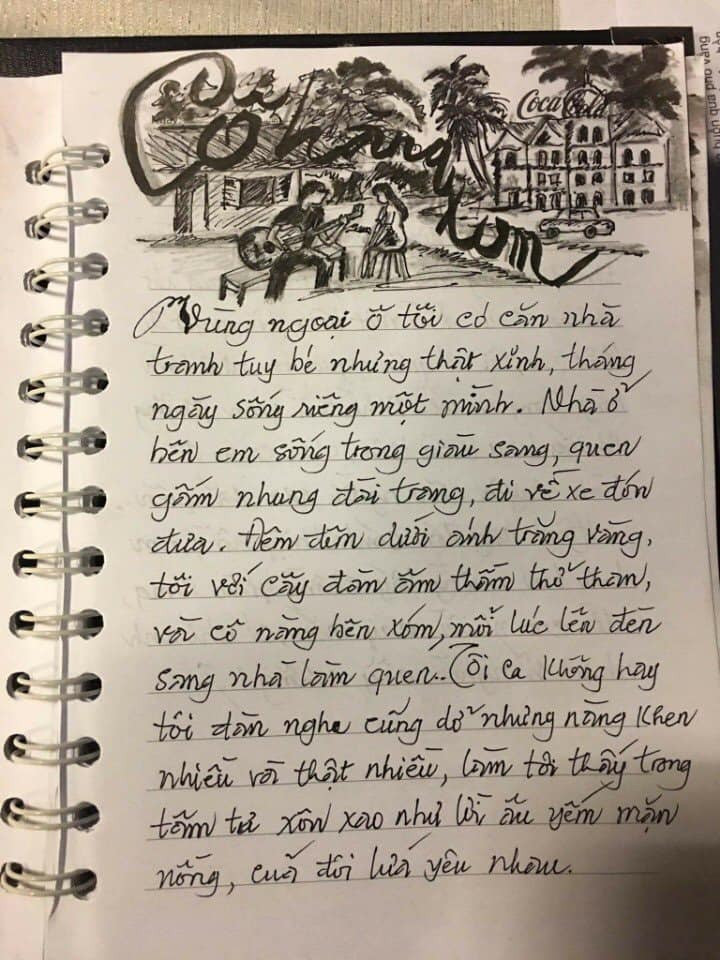 Cô hàng xóm
Coca Cola
Vùng ngoại ô tôi có căn nhà
tranh tuy bé nhưng thật xinh, tháng
ngày sống riêng một mình. Nhà ở
bên em sống trong giàu sang, quen
gấm nhung đài trang, đi về xe đón
đưa. Đêm đêm dưới ánh trăng vàng,
tôi với cây đàn âm thầm thở than,
và cô nàng bên xóm, mỗi lúc lên đèn
sang nhà làm quen.. Tôi ca không hay
tôi đàn nghe cũng dở nhưng nàng khen
nhiều và thật nhiều, làm tôi thấy trong
tâm tư xôn xao như lời âu yếm mặn
nồng, của đôi lứa yêu nhau.